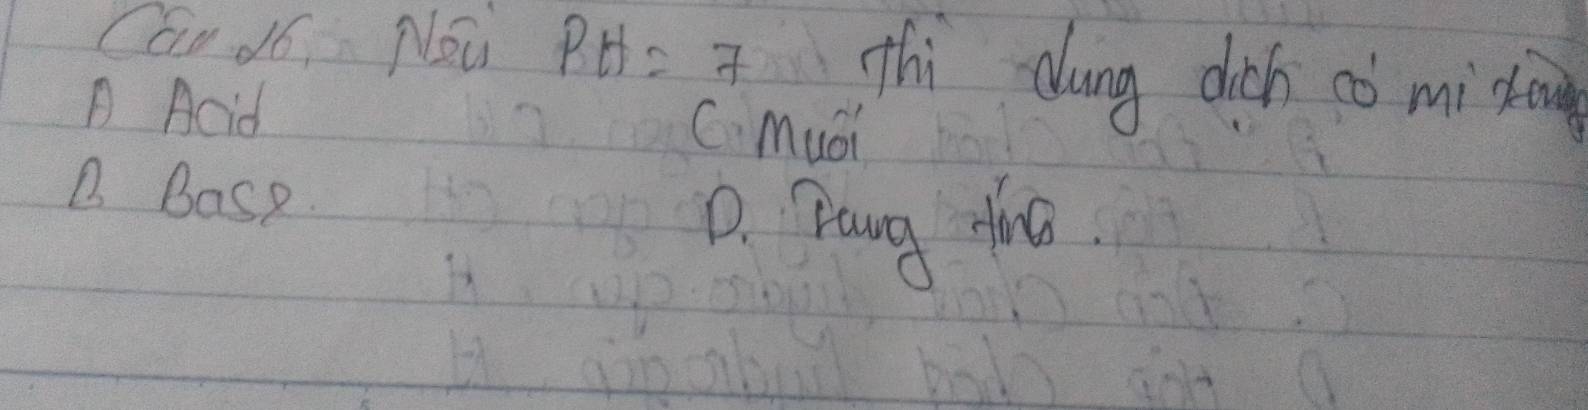 Câu 26, Nếu PH = 7 thì dung dịch có mi trường
A Acid
C muối
B Base.
D. Trung tính.